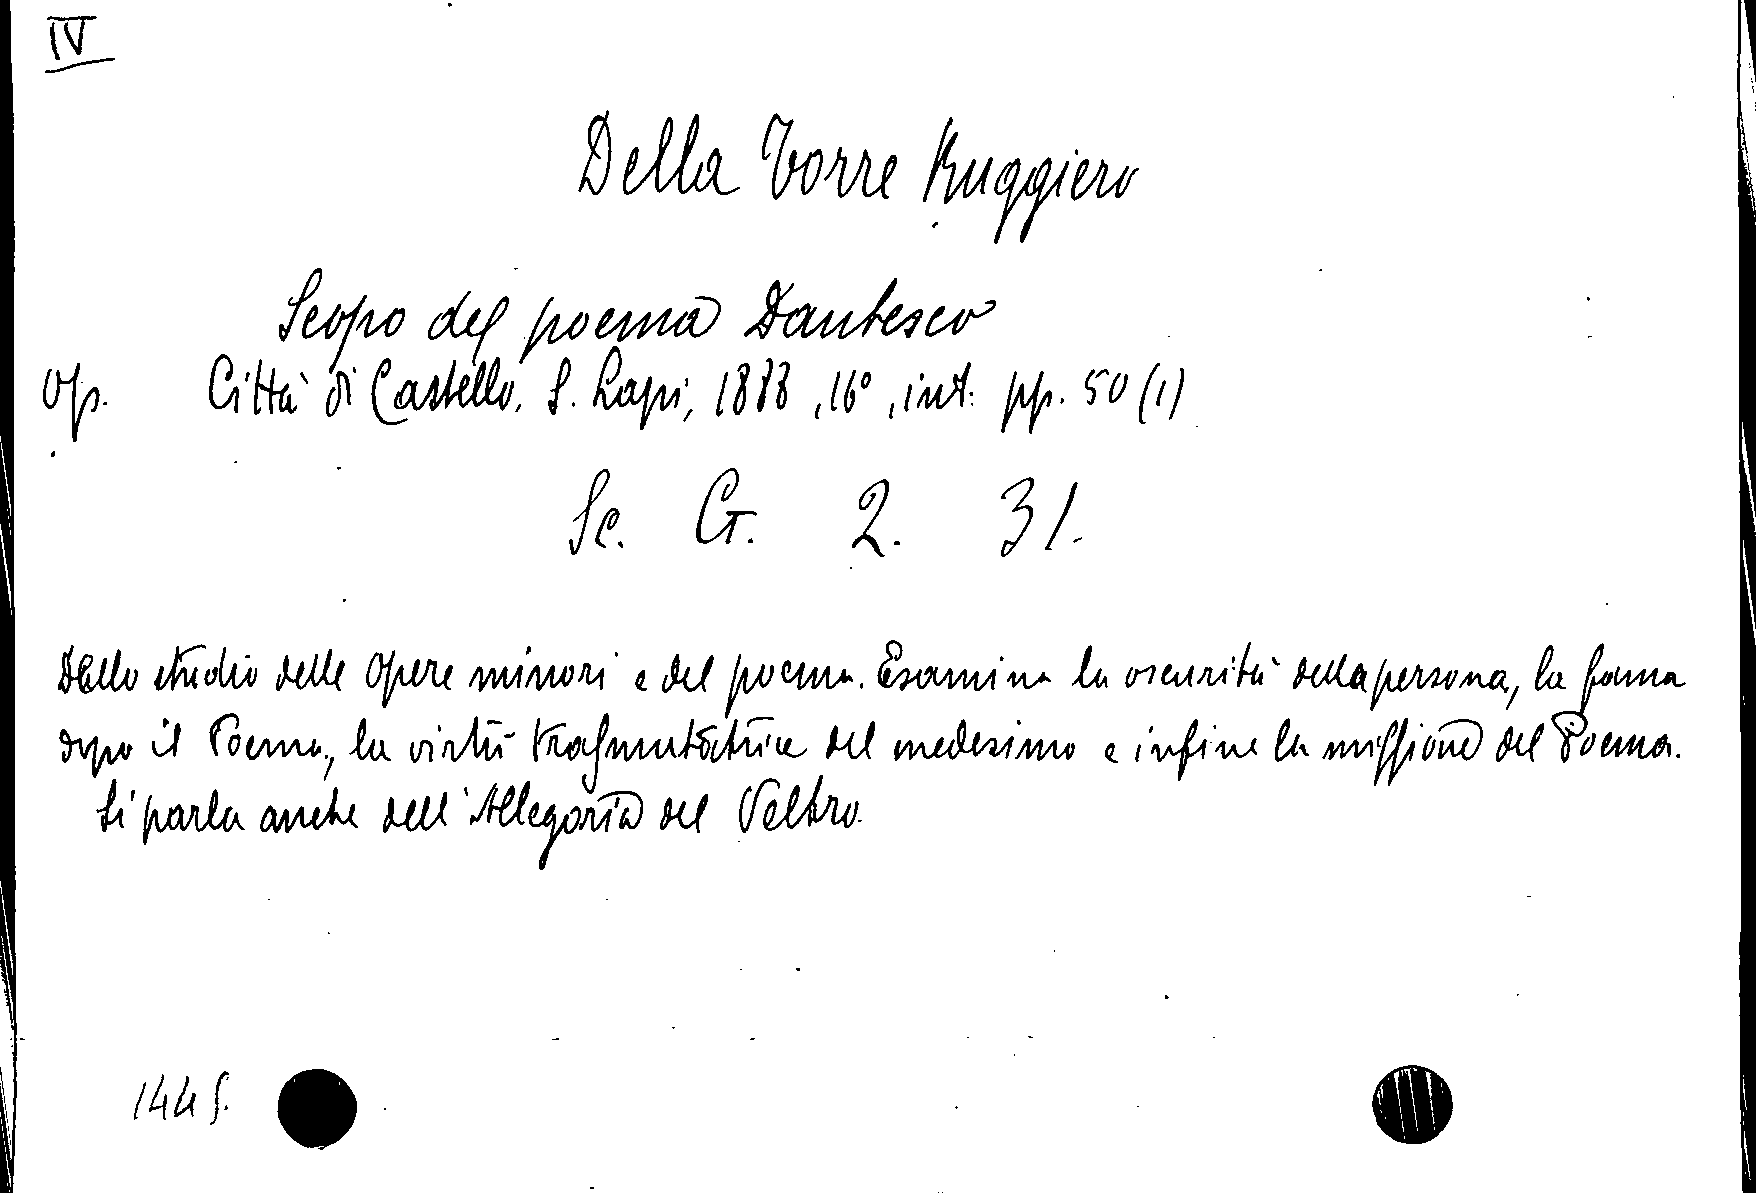 IV
Della Torre Ruggiero
Scopo del poema Dantesco
Op. Città di Castello, S. Lapi, 1888, 16°, int. pp. 50 (1)
Sc. G. 2. 31.
Dello studio delle Opere minori e del poema. Esamina la oscurità della persona, la fama
dopo il Poema, la virtù trasmutatrice del medesimo e infine la missione del Poema.
Si parla anche dell'Allegoria del Veltro.
1445.